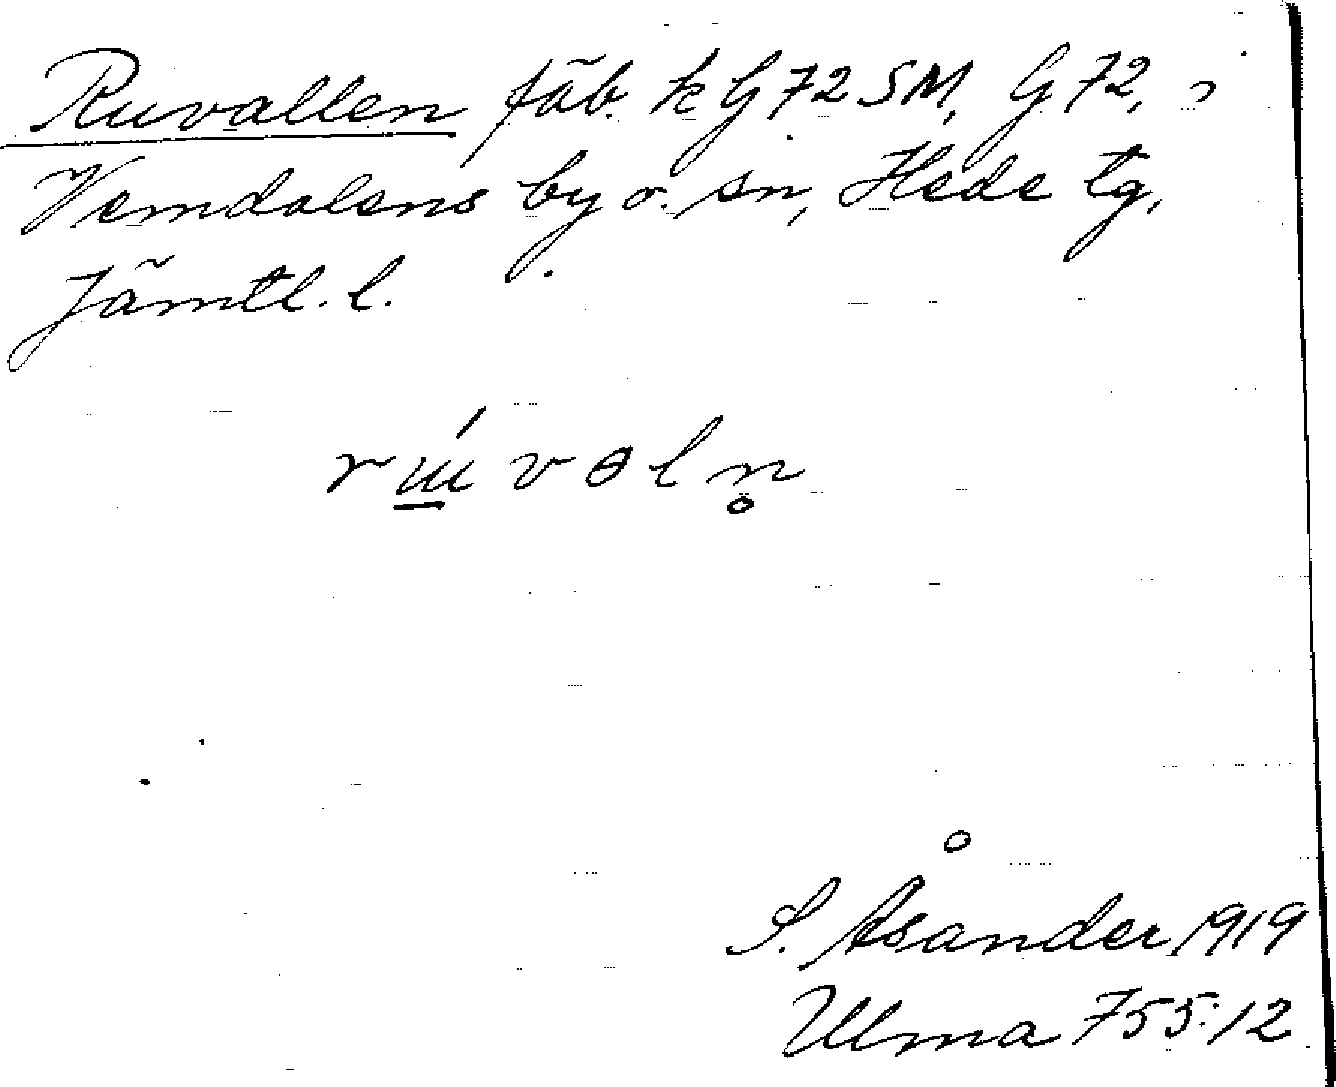 Ruvallen fäb. k G 72 SM, G 72, i
Vemdalens by o. sn, Hede tg,
Jämtl. l.
S. Åsander 1919
Ulma 755:12